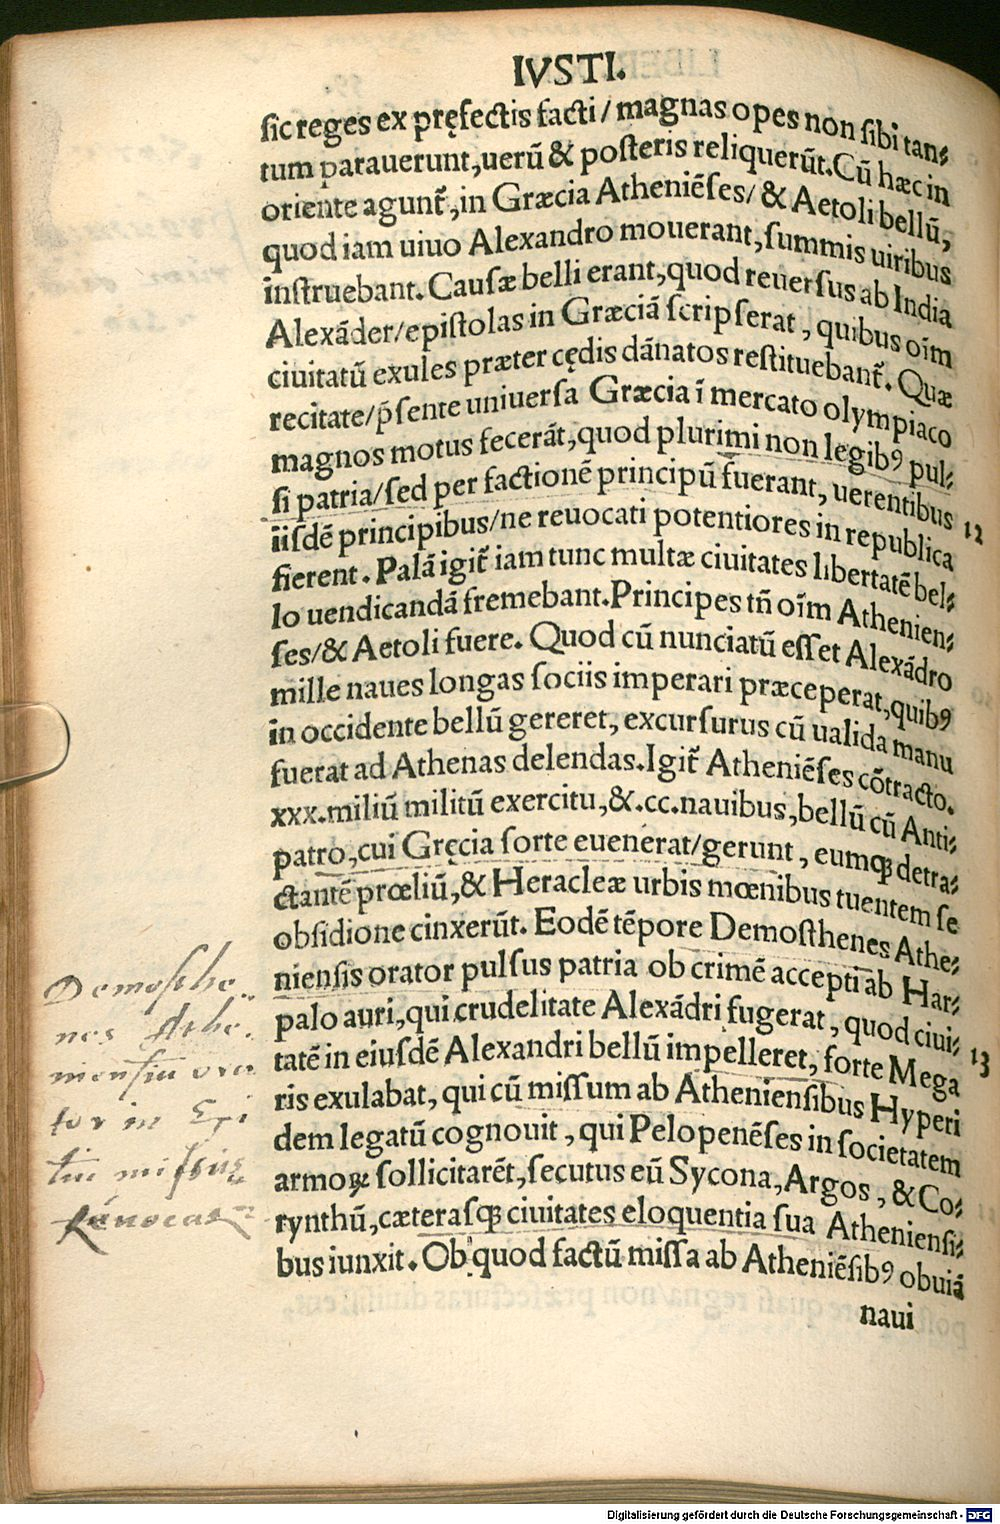 IVSTI.
ſic reges ex pręfectis facti / magnas opes non ſibi tan⸗
tum parauerunt, uerū & poſteris reliquerūt. Cū hæc in
oriente agunt᷑, in Græcia Atheniēſes / & Aetoli bellū,
quod iam uiuo Alexandro mouerant, ſummis uiribus
inſtruebant. Cauſæ belli erant, quod reuerſus ab India
Alexāder / epiſtolas in Græciā ſcripſerat, quibus oīm
ciuitatū exules præter cędis dānatos reſtituebant᷑. Quæ
recitate / p̄ſente uniuerſa Græcia ī mercato olympiaco
magnos motus fecerāt, quod plurimi non legibꝰ pul⸗
ſi patria / ſed per factionē principū fuerant, uerentibus
iiſdē principibus / ne reuocati potentiores in republica
12
fierent. Palā igit᷑ iam tunc multæ ciuitates libertatē bel⸗
lo uendicandā fremebant. Principes tñ oīm Athenien⸗
ſes / & Aetoli fuere. Quod cū nunciatū eſſet Alexādro
mille naues longas ſociis imperari præceperat, quibꝰ
in occidente bellū gereret, excurſurus cū ualida manu
fuerat ad Athenas delendas. Igit᷑ Atheniēſes cōtracto.
xxx. miliū militū exercitu, &. cc. nauibus, bellū cū Anti⸗
patro, cui Gręcia ſorte euenerat / gerunt, eumqꝫ detra⸗
ctantē prœliū, & Heracleæ urbis mœnibus tuentem ſe
obſidione cinxerūt. Eodē tēpore Demoſthenes Athe⸗
nienſis orator pulſus patria ob crimē accepti ab Har⸗
palo auri, qui crudelitate Alexādri fugerat, quod ciui⸗
tatē in eiuſdē Alexandri bellū impelleret, forte Mega
13
ris exulabat, qui cū miſſum ab Athenienſibus Hyperi
dem legatū cognouit, qui Pelopenēſes in ſocietatem
armoꝝ ſollicitarēt, ſecutus eū Sycona, Argos, & Co⸗
rynthū, cæteraſqꝫ ciuitates eloquentia ſua Athenienſi⸗
bus iunxit. Ob quod factū miſſa ab Atheniēſibꝰ obuiā
naui
Demoſthe
nes Athe
nienſiū ora
tor in
miſſus
Digitalisierung gefördert durch die Deutsche Forschungsgemeinschaft - DFG